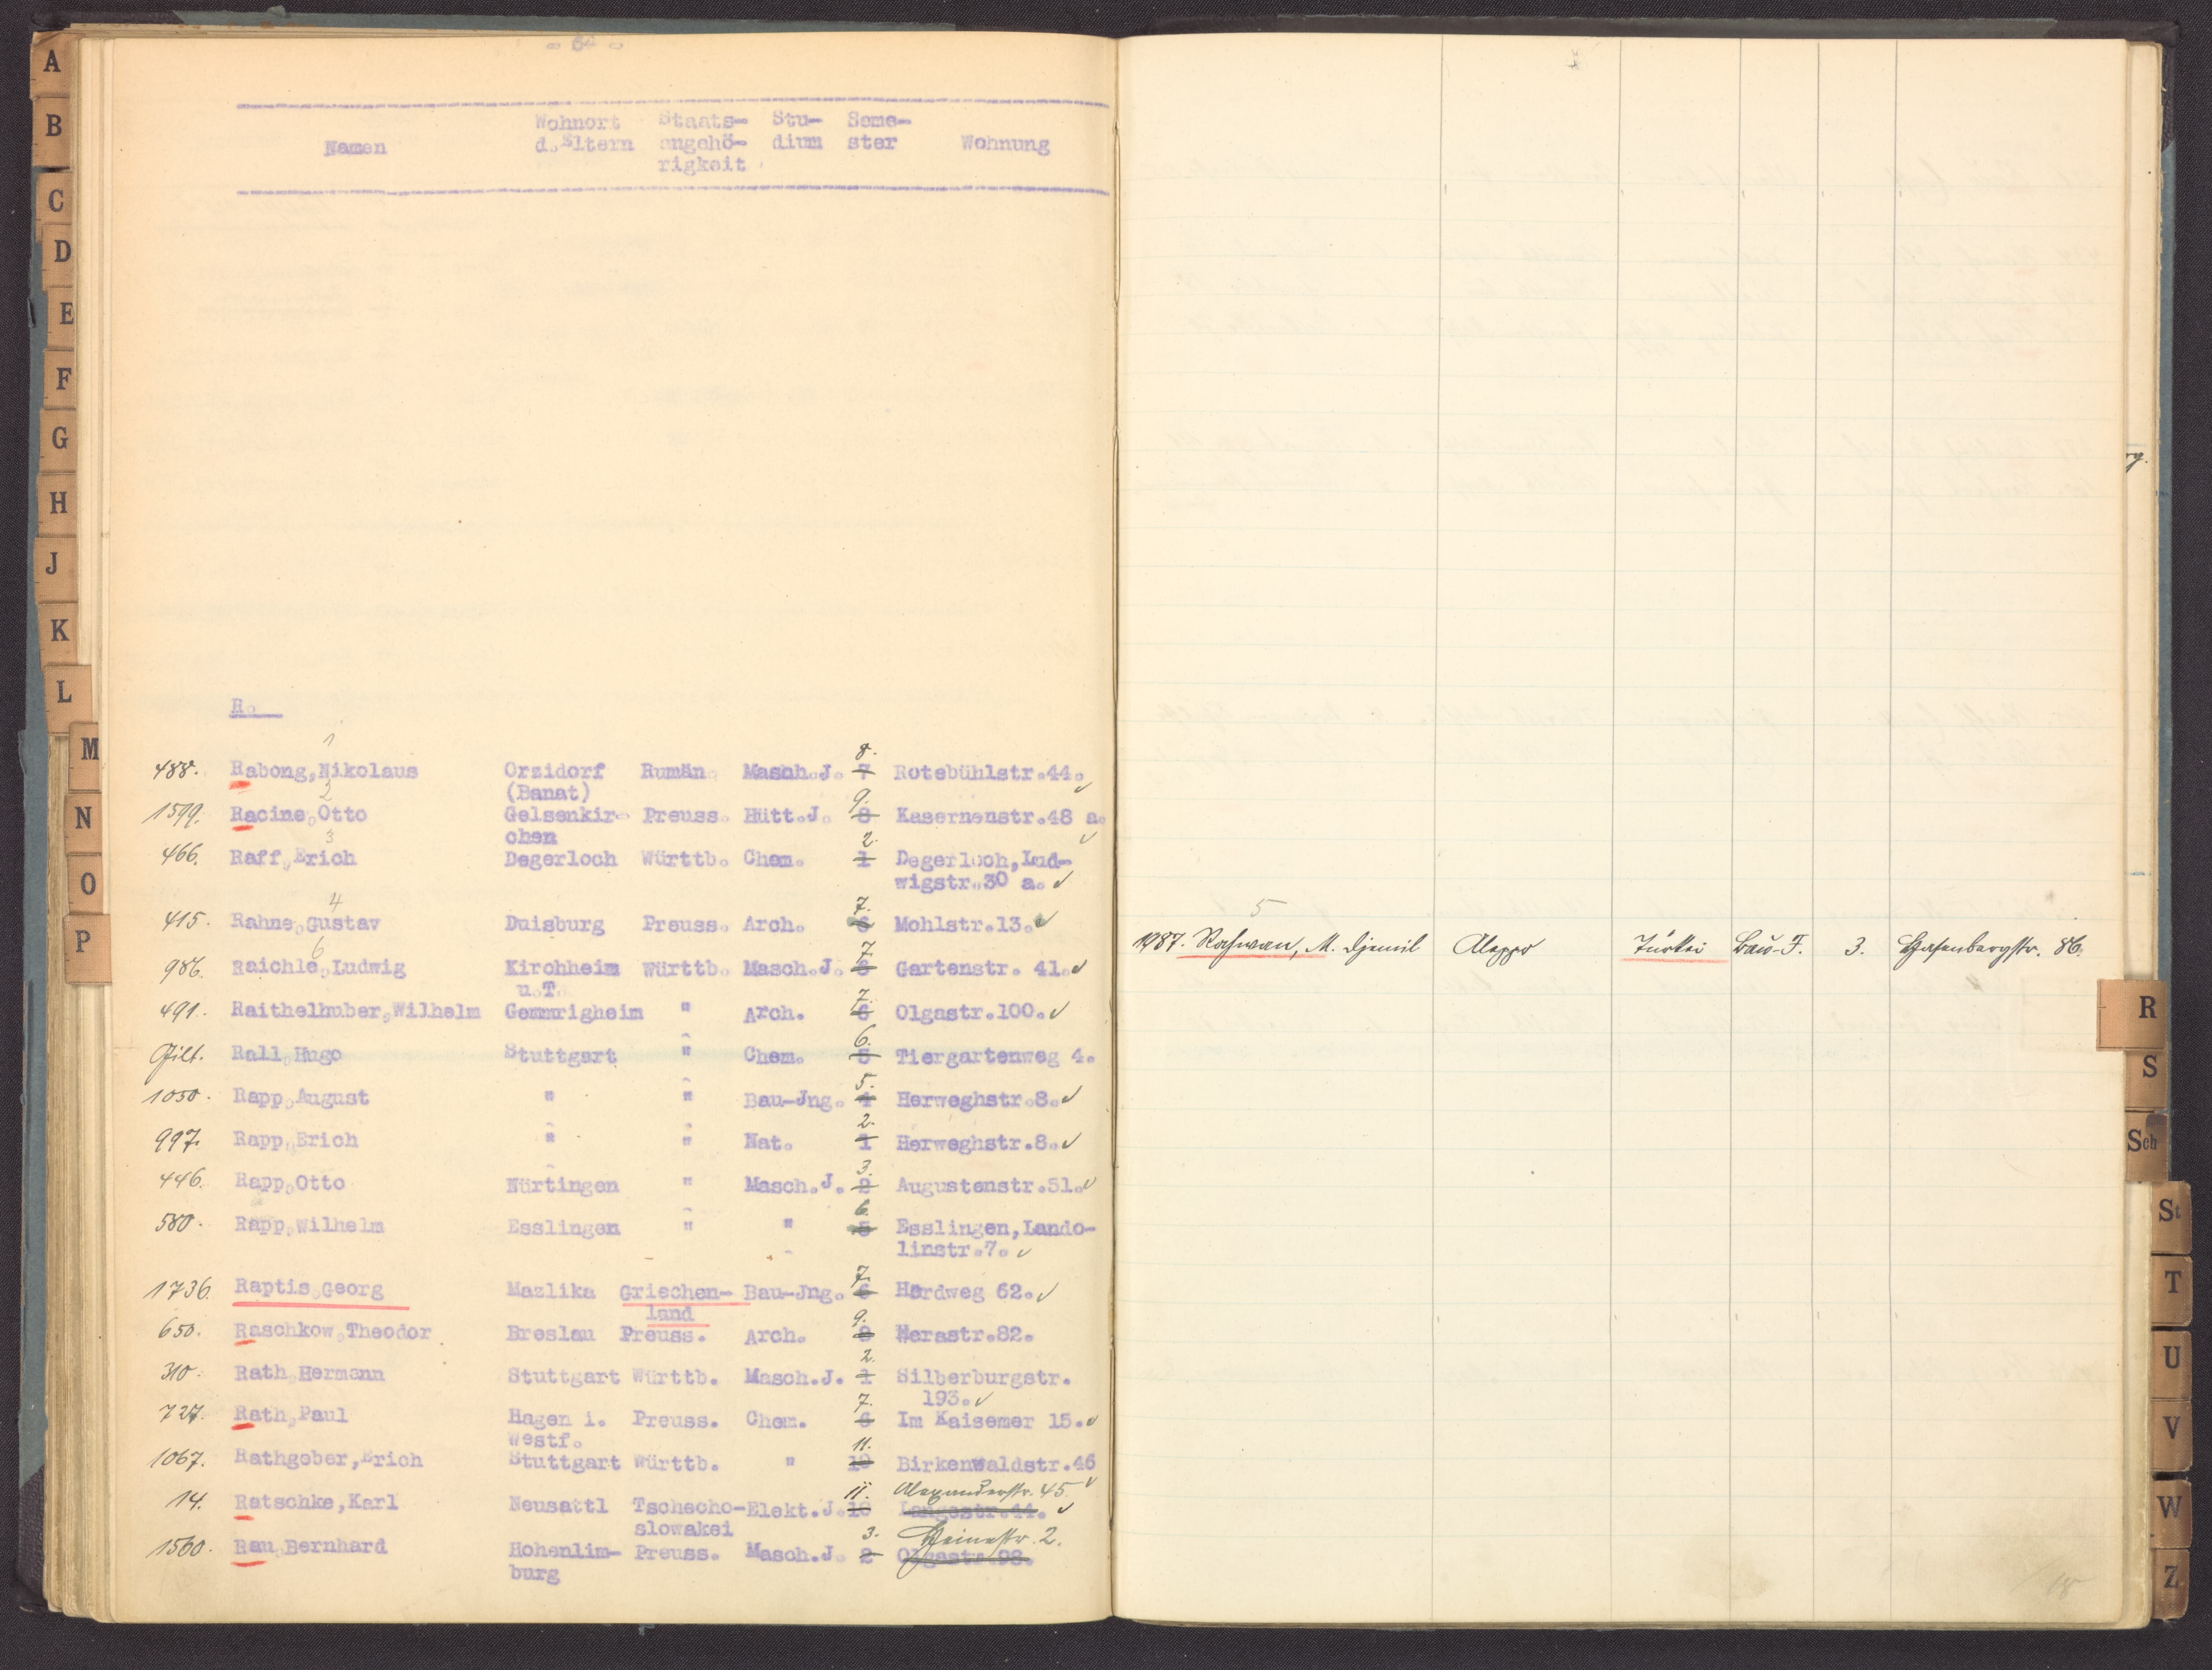 - 64 -
Namen Wohnort d.Eltern Staats-angehö-rigkeit Stu-dium Seme-ster Wohnung
R.
1
8.
488. Rabong,Nikolaus Orzidorf Rumän. Masch.J. 7 Rotebühlstr.44. ✓
2
(Banat)
9.
1599. Racine,Otto Gelsenkir- Preuss. Hütt.J. 8 Kasernenstr.48 a.
3
chen ✓
2.
466. Raff,Erich Degerloch Württb. Chem. 1 Degerloch,Lud-
wigstr.30 a. ✓
4
7.
415. Rahne,Gustav Duisburg Preuss. Arch. 6 Mohlstr.13. ✓
6
7.
986. Raichle,Ludwig Kirchheim Württb. Masch.J. 6 Gartenstr. 41. ✓
u.T.
7.
491. Raithelhuber,Wilhelm Gemmrigheim " Arch. 6 Olgastr.100. ✓
6.
Filt. Rall,Hugo Stuttgart " Chem. 5 Tiergartenweg 4.
5.
1050. Rapp,August " " Bau-Jng. 4 Herweghstr.8. ✓
2.
997. Rapp,Erich " " Nat. 1 Herweghstr.8. ✓
3.
446. Rapp,Otto Nürtingen " Masch.J. 2 Augustenstr.51. ✓
6.
580. Rapp,Wilhelm Esslingen " " 5 Esslingen,Lando-
linstr.7. ✓
7.
1736. Raptis,Georg Mazlika Griechen- Bau-Jng. 6 Herdweg 62. ✓
land
9.
650. Raschkow,Theodor Breslau Preuss. Arch. 8 Werastr.82.
2.
310. Rath,Hermann Stuttgart Württb. Masch.J. 1 Silberburgstr.
193. ✓
7.
727. Rath,Paul Hagen i. Preuss. Chem. 6 Im Kaisemer 15. ✓
Westf.
11.
1067. Rathgeber,Erich Stuttgart Württb. " 10 Birkenwaldstr.46
✓
11. Alexanderstr. 45.
14. Ratschke,Karl Neusattl Tschecho- Elekt.J. 10 Langestr.44. ✓
slowakei
3. Heinestr. 2.
1560. Rau,Bernhard Hohenlim- Preuss. Masch.J. 2 Olgastr.98.
burg
5
1987. Rahwan, M. Djemil Aleppo Türkei Bau-I. 3. Hasenbergstr. 86.
A
B
C
D
E
F
G
H
J
K
L
M
N
O
P
R
S
Sch
St
T
U
V
W
Z